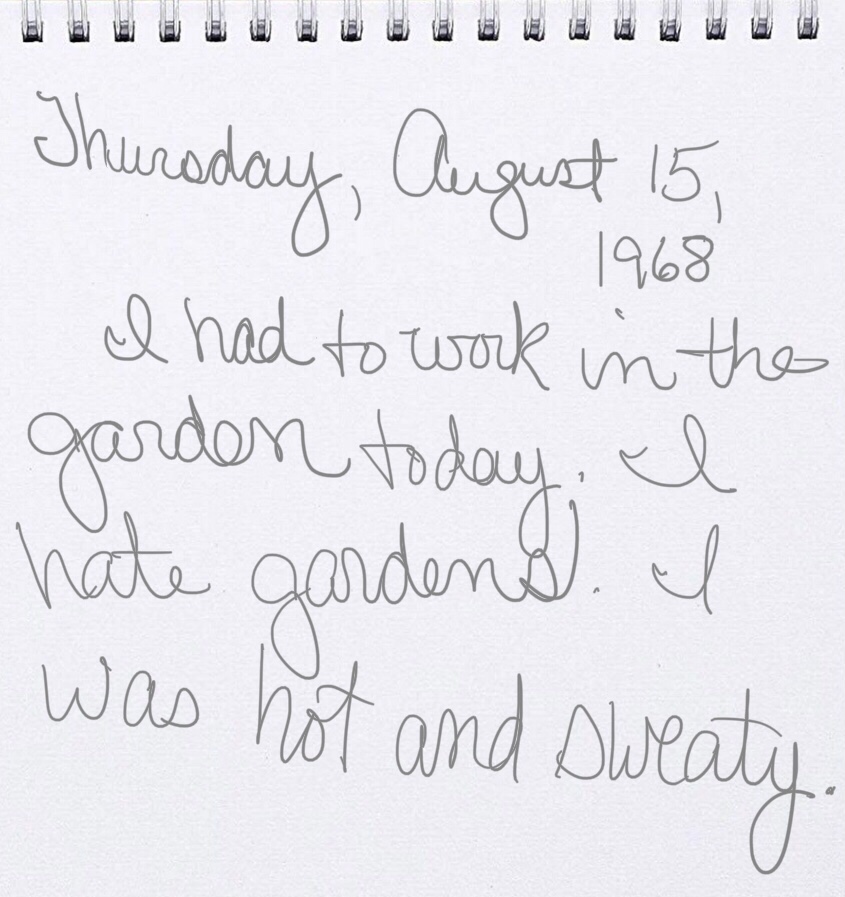 Thursday, August 15,
1968
I had to work in the
garden today. I
hate gardens. I
was hot and sweaty.